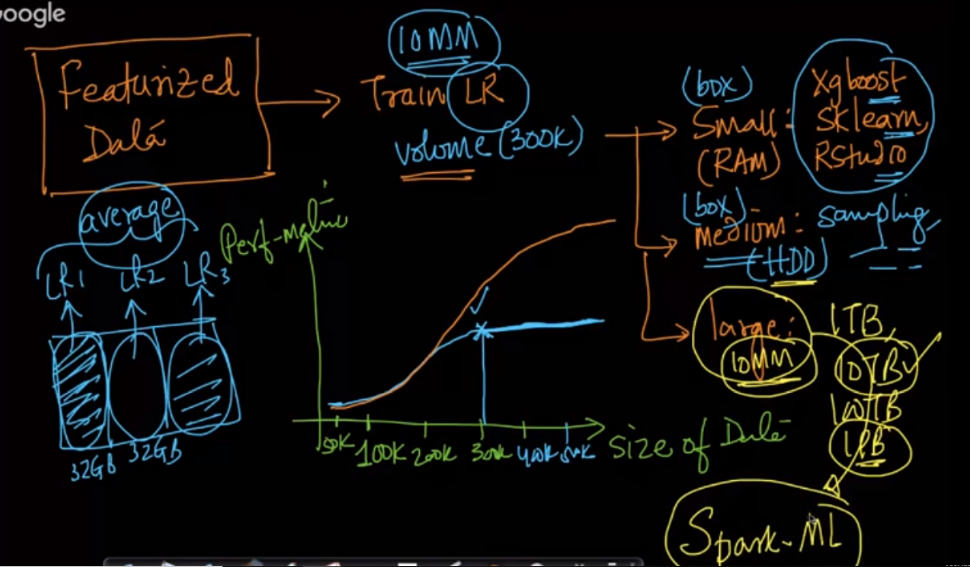 oogle
Featurized
Data
10MM
Train LR
volume (300K)
(box)
Small:
(RAM)
Xgboost
Sklearn,
RStudio
(box)
Medium: sampling,
(HDD)
large:
10MM
1TB,
10TB
100TB
1PB
Spark-ML
average
LR1 LR2 LR3
32GB 32GB
Perf-metric
50K 100K 200K 300K 400K 500K
Size of Data